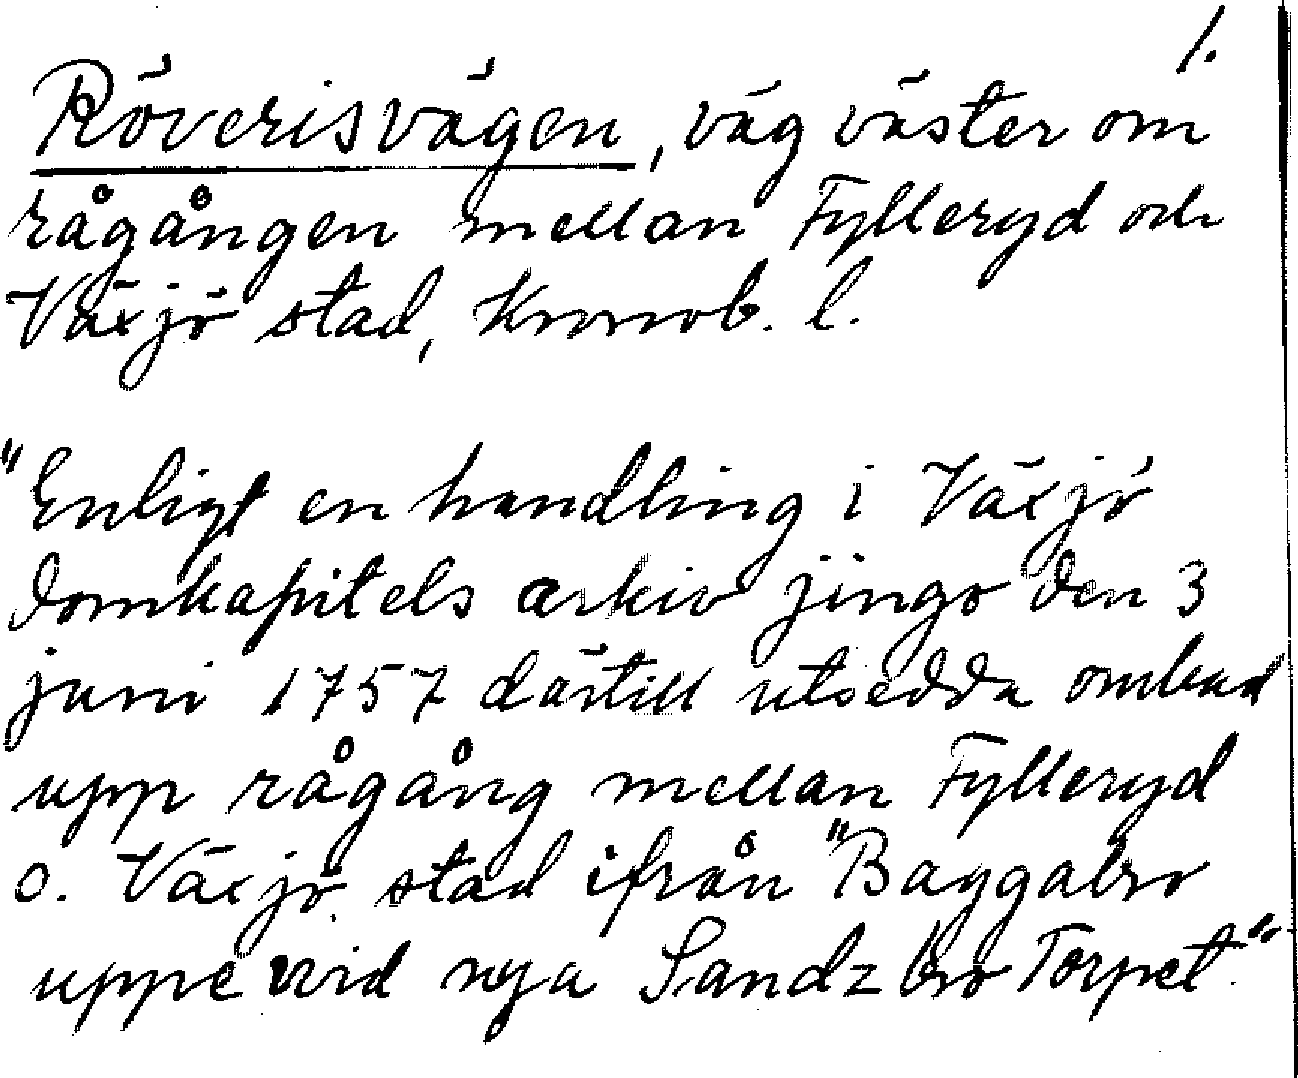 1.
Röverisvägen, väg väster om
rågången mellan Fylleryd och
Växjö stad, Kronob. l.
"Enligt en handling i Växjö
domkapitels arkiv jingo den 3
juni 1757 därtill utsedda ombud
upp rågång mellan Fylleryd
o. Växjö stad ifrån "Baggabro
uppe wid nya Sandzbro Torpet."